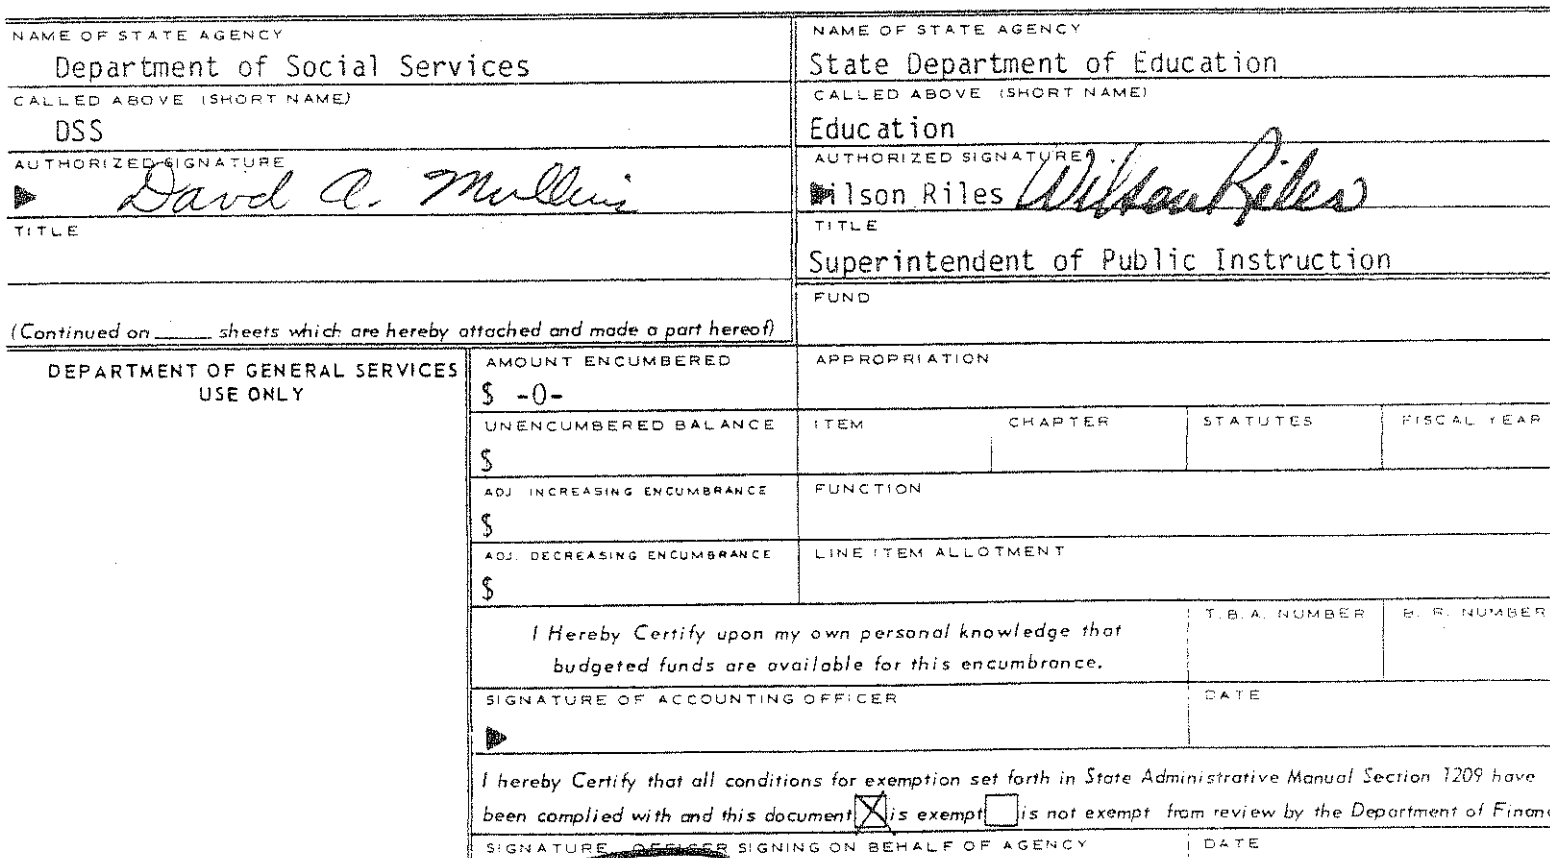 NAME OF STATE AGENCY
Department of Social Services
CALLED ABOVE (SHORT NAME)
DSS
AUTHORIZED SIGNATURE
David A. Mullins
TITLE
(Continued on ____ sheets which are hereby attached and made a part hereof)
NAME OF STATE AGENCY
State Department of Education
CALLED ABOVE (SHORT NAME)
Education
AUTHORIZED SIGNATURE
Wilson Riles Wilson Riles
TITLE
Superintendent of Public Instruction
FUND
DEPARTMENT OF GENERAL SERVICES
USE ONLY
AMOUNT ENCUMBERED
$ -0-
APPROPRIATION
UNENCUMBERED BALANCE
$
ITEM CHAPTER STATUTES FISCAL YEAR
ADJ. INCREASING ENCUMBRANCE
$
FUNCTION
ADJ. DECREASING ENCUMBRANCE
$
LINE ITEM ALLOTMENT
I Hereby Certify upon my own personal knowledge that
budgeted funds are available for this encumbrance.
T.B.A. NUMBER B. R. NUMBER
SIGNATURE OF ACCOUNTING OFFICER DATE
I hereby Certify that all conditions for exemption set forth in State Administrative Manual Section 1209 have
been complied with and this document X is exempt is not exempt from review by the Department of Financ
SIGNATURE OFFICER SIGNING ON BEHALF OF AGENCY DATE